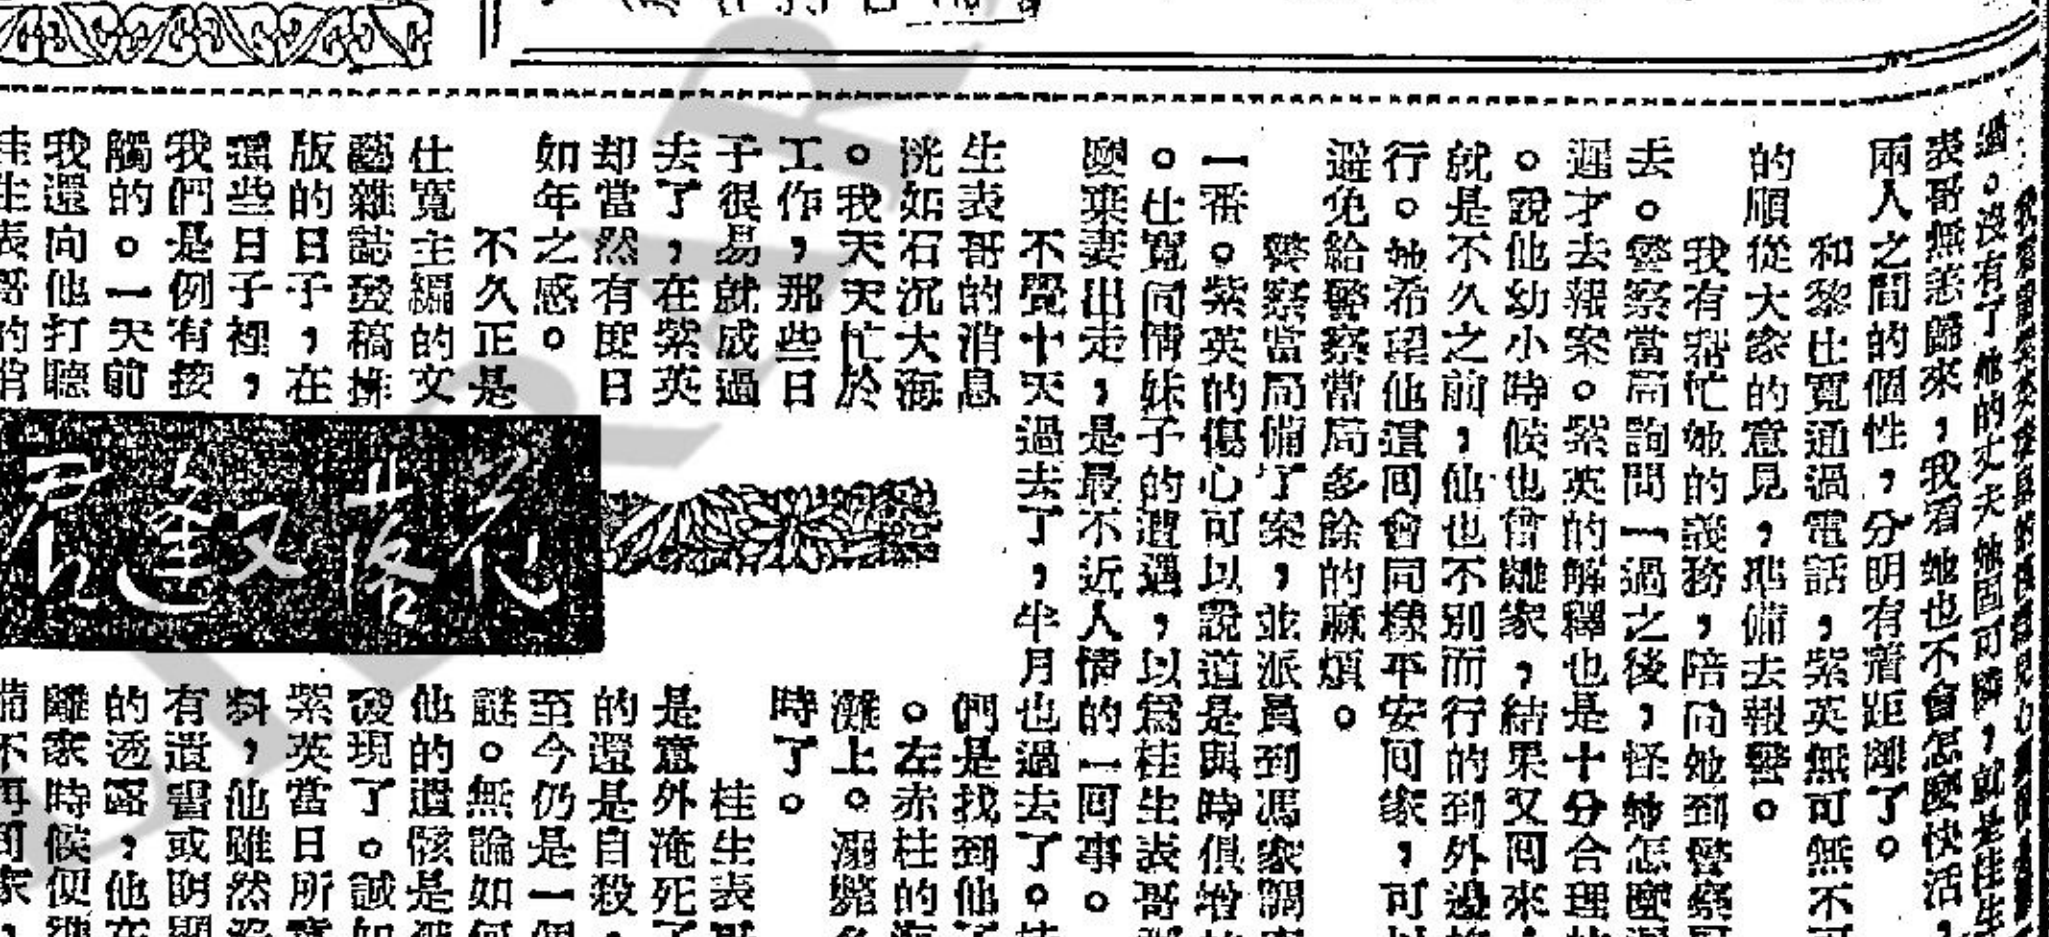 過。沒有了她的丈夫她固可憐，就是桂生
表哥無恙歸來，我看她也不會怎麼快活，
兩人之間的個性，分明有着距離了。
和黎仕寬通過電話，紫英無可無不可
的順從大家的意見，準備去報警。
我有幫忙她的義務，陪同她到警察局
去。警察當局詢問一過之後，怪她怎麼
遲才去報案。紫英的解釋也是十分合理
。說他幼小時候也曾離家，結果又回來
就是不久之前，他也不別而行的到外邊旅
行。她希望他這回會同樣平安回家，可以
避免給警察當局多餘的麻煩。
警察當局備了案，並派員到馮家調查
一番。紫英的傷心可以說道是與時俱增
。仕寬同情妹子的遭遇，以爲桂生表哥
麼棄妻出走，是最不近人情的一回事。
不覺十天過去了，半月也過去了。桂
生表哥的消息
恍如石沉大海
。我天天忙於
工作，那些日
子很易就成過
去了，在紫英
却當然有度日
如年之感。
不久正是
仕寬主編的文
藝雜誌發稿排
版的日子，在
這些日子裡，
我們是例有接
觸的。一天前
我還向他打聽
桂生表哥的消
花落又逢君
們是找到他了
。左赤柱的海
灘上。溺斃多
時了。
桂生表哥
是意外淹死了
的還是自殺，
至今仍是一個
謎。無論如何
他的遺骸是被
發現了。誠如
紫英當日所
料，他雖然沒
有遺書或明顯
的透露，他在
離家時候便
備不再回家，